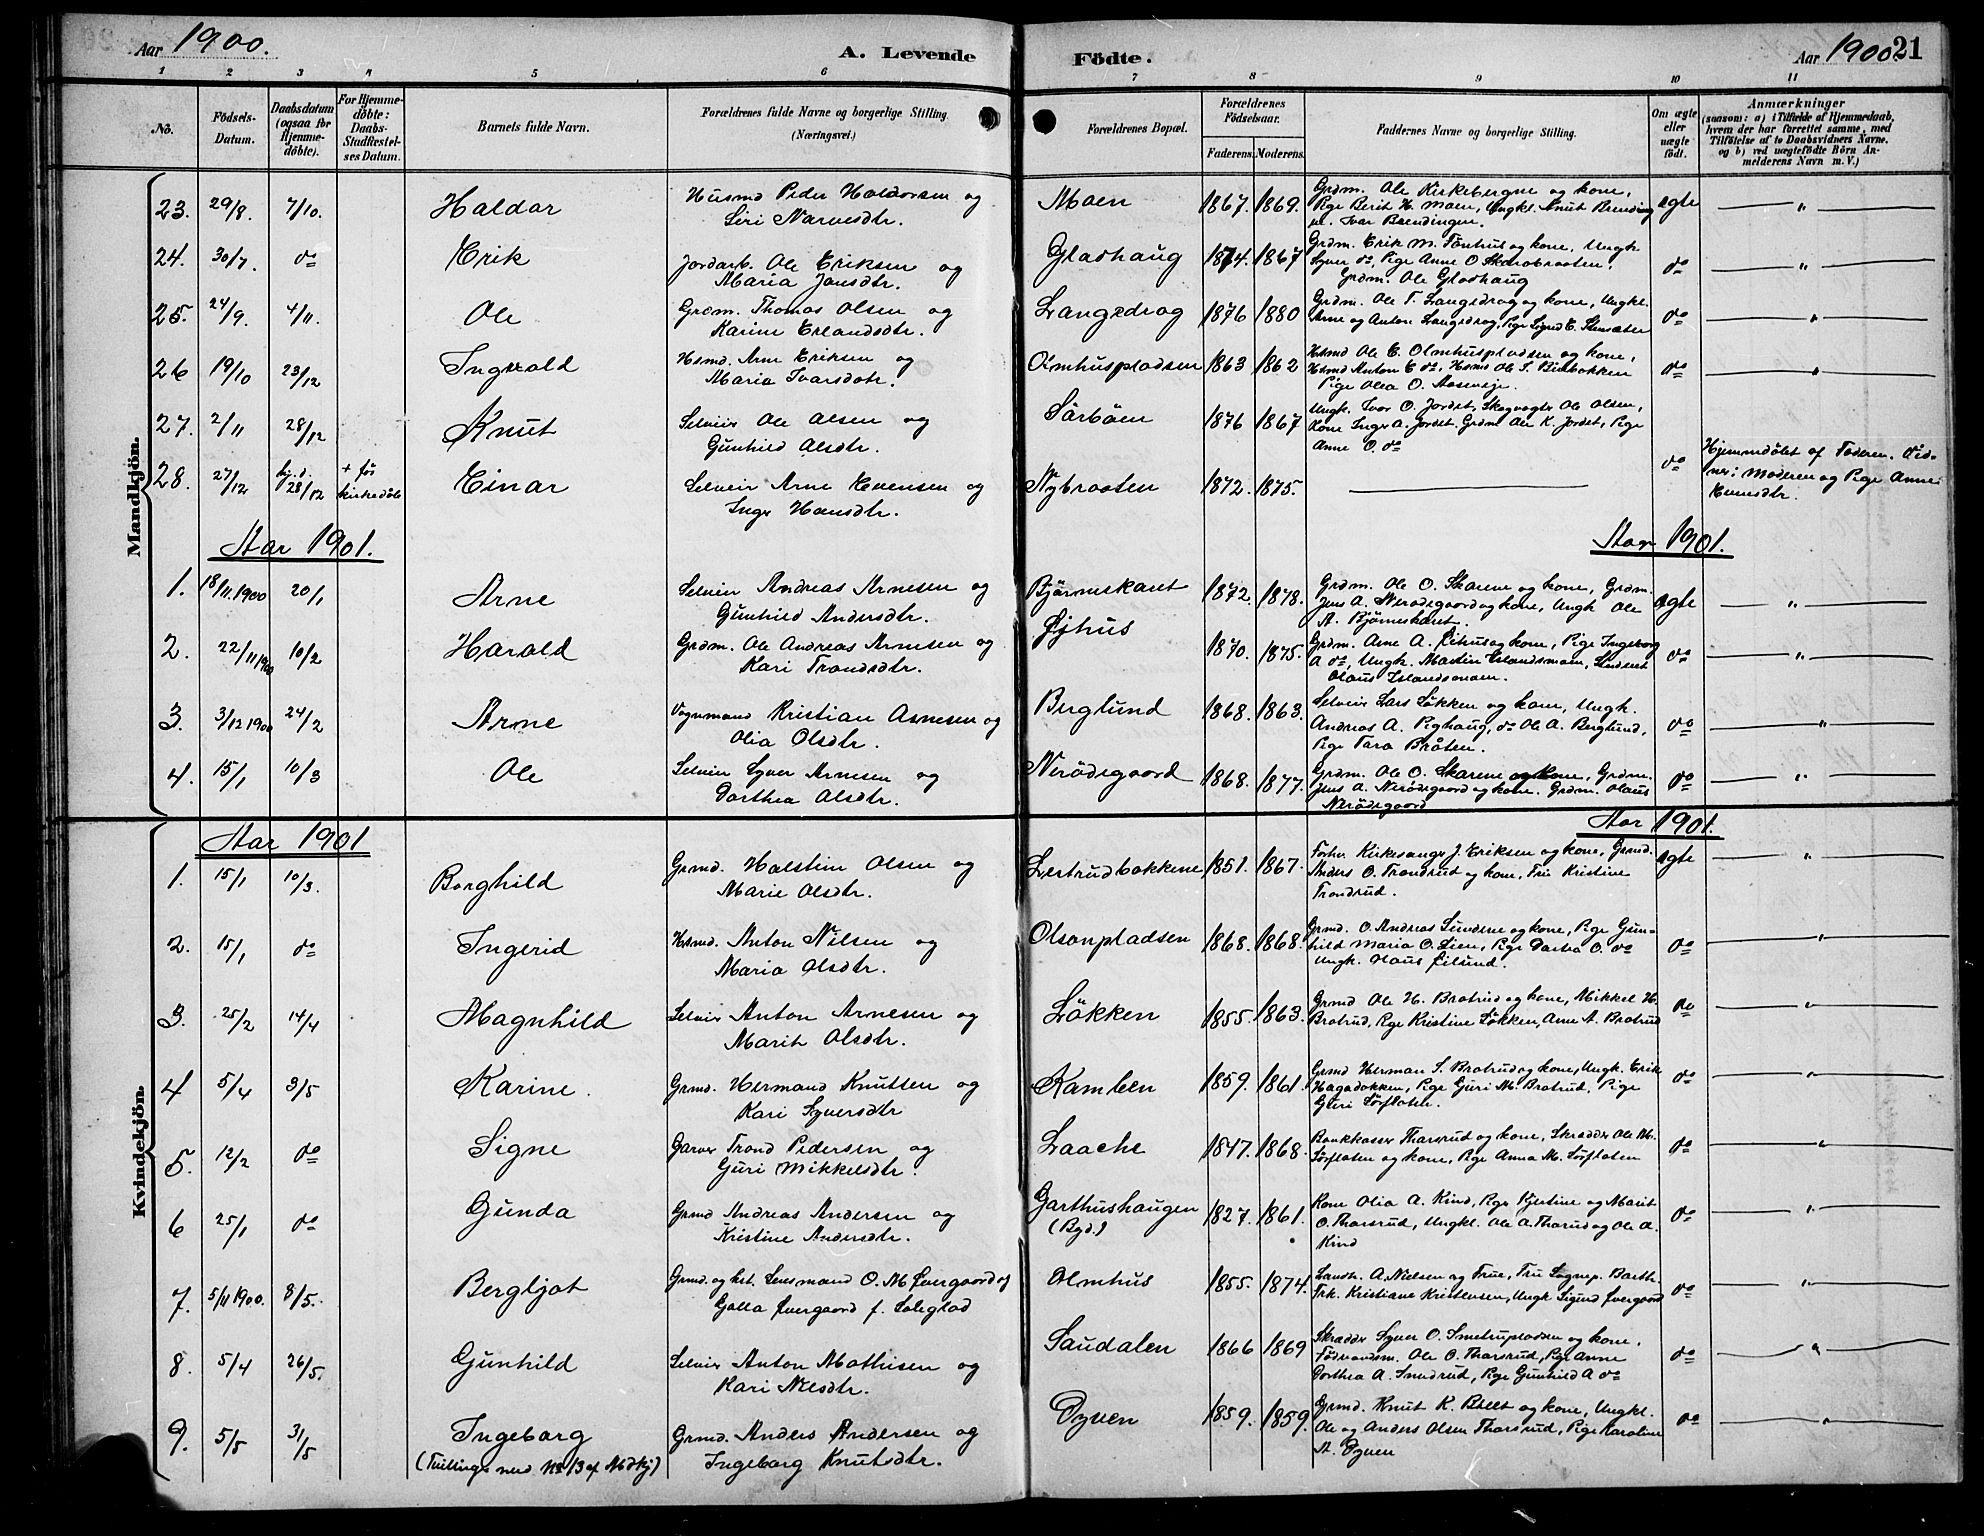 Aar 1900. A. Levende Födte. Aar 1900. 21
1 2 3 4 5 6 7 8 9 10 11
No. Födsels-Datum. Daabsdatum (ogsaa for Hjemmedöbte). For Hjemmedöbte: Daabs-Stadfæstelses Datum. Barnets fulde Navn. Forældrenes fulde Navne og borgerlige Stilling. (Næringsvei.) Forældrenes Bopæl. Forældrenes Födselsaar. Faderens. Moderens. Faddernes Navne og borgerlige Stilling. Om ægte eller uægte födt. Anmærkninger (saasom: a) i Tilfælde af Hjemmedaab, hvem der har forrettet samme, med Tilföielse af to Daabsvidners Navne, og b) ved uægtefödte Börn Anmelderens Navn m. V.)
Mandkjön.
23. 29/8. 7/10. Haldor Husmd Peder Haldorsen og Moen 1867. 1869. Grdm. Ole Kirkebergne og kone, ægte "
Siri Narvesdtr. Pige Berit H. Moen, Ungkl. Knut Brending
Ivar Brendingen.
24. 30/7. do Erik Jordarb. Ole Eriksen og Gladhaug 1874. 1867 Grdm. Erik M. Töntrut og kone, Ungk. do "
Maria Jonsdtr. Syver do, Pige Anne O. Skarabraaten,
Grdm. Ole Gladhaug
25. 24/9. 4/11. Ole Grdm. Thomas Olsen og Langedrag 1876 1880 Grdm. Ole T. Langedrag og kone, Ungkl. do "
Karine Erlandsdtr. Arne og Anton Langedrag, Pige Sigrid E. Stensæter
26 19/10 23/12 Ingvald Hsmd. Arne Eriksen og Olmhuspladsen 1863 1862 Hsmd Ole E. Olmhuspladsen og kone, do "
Maria Ivarsdtr. Hsmd Anton E do, Hsmd Ole S.
Pige Olea O.
27. 2/11 28/12 Knut Selveir Ole Olsen og Sörböen 1876 1867 Ungk. Ivar O. Jordet, Skogvogter Ole Olsen,
Gunhild Olsdtr. Kone Inger A. Jordet, Grdm Ole K. Jordet, Pige
Anne O. do
28. 27/12 hj.d. 28/12 + før kirkedåb Einar Selveier Arne Evensen og Nybraaten 1872. 1875. do Hjemmedöbt af Faderen. Vid-
Inger Hansdtr. ner: Moderen og Pige Anne
Evensdtr.
Aar 1901. Aar 1901.
1. 18/11.1900 20/1 Arne Selveier Andreas Arnesen og Björneskaret 1872. 1878. Grdm. Ole O. Skarene og kone, Grdm. ægte "
Gunhild Andersdtr. Jens A. Nerödegaard og kone, Ungk Ole
A. Björneskaret.
2. 22/11 1900 10/2 Harald Grdm. Ole Andreas Arnesen og Ejhus 1870. 1875. Grdm. Arne A. Eihus og kone, Pige Ingeborg do "
Kari Trondsdtr. A do, Ungk. Martin Islandsmoen, Student
Olaus Islandsmoen.
3. 3/12 1900 24/2 Arne Vognmand Kristian Arnesen og Berglund 1868. 1863. Selveier Lars Løkken og kone, Ungk. do "
Olia Olsdtr. Andreas A. Pighaug, do Ole A. Berglund,
Pige Tara Bråten.
4. 15/1 10/3 Ole Selveier Syver Arnesen og Nerödegaard 1868. 1877. Grdm. Ole O. Skarene og kone, Grdm. do "
Dorthea Olsdtr. Jens A. Nerödegaard og kone. Grdm. Olaus
Nerödegaard
Kvindekjön.
Aar 1901 Aar 1901.
1. 15/1 10/3. Borghild Grmd. Halstein Olsen og Lertrudbakkene 1851. 1867. Forhv Kirkesanger J. Eriksen og kone, Grmd. ægte "
Marie Olsdtr. Anders O. Trondrud og kone, Frk Kristine
Trondrud.
2. 15/1 do Ingerid Hsmd. Anton Nilsen og Olsonpladsen 1868. 1868. Grmd. O. Andreas Lundene og kone, Pige Gun- do "
Maria Olsdtr. hild Maria O. Lien, Pige Dartea O. do
Ungk. Olaus Eilund.
3. 25/2 14/4 Magnhild Selveier Anton Arnesen og Løkken 1855. 1863. Grmd Ole H. Bratrud og kone, Mikkel H. do "
Marit Olsdtr. Bratrud, Pige Kristine Løkken, Anne A. Bratrud
4 5/4 3/5 Karine. Grmd. Hermand Knutsen og Kamben 1859. 1861. Grmd Herman S. Bratrud og kone, Ungk. Erik do "
Kari Syversdtr Hagabakken, Pige Guri M. Bratrud, Pige
Guri Sörflaten.
5. 12/2 do Signe Garver Trond Pedersen og Laache 1847. 1868. Bankkasser Tharsrud og kone, Skrædder Ole M. do "
Guri Mikkelsdtr. Sörflaten og kone, Pige Anna M. Sörflaten
6 25/1 do Gunda Grmd Andreas Andersen og Garthushaugen 1827. 1861. Kone Olia A. Kind, Pige Kjerstine og Marit do "
Kristine Andersdtr. (Bgd.) O. Tharsrud, Ungkl. Ole A. Tharsrud og Ole A.
Kind
7. 5/11 1900. 8/5. Bergljot Grmd. og kst. Lensmand O. M. Evergaard og Olmhus 1855. 1874. Landh. A. Nielsen og Frue, Fru Sogнepr. Barth do "
Galla Evergaard f. Soleglad Frk. Kristiane Kristensen, Ungk Sigurd Evergaard
8. 5/4 26/5. Gunhild Selveier Anton Mathisen og Saudalen 1866 1869 Skrædder Syver O. Smedrupladsen og kone, do "
Kari Nilsdtr. Ole O. Tharsrud, Pige Anne
Dorthea A. Smedrud, Pige Gunhild A do
9. 5/5 31/5 Ingeborg Grmd. Anders Andersen og Dyven 1859. 1859. Grmd. Knut K. Bleet og kone, Ungkl. do "
(Tvillinge med No 13 af Mdkj) Ingeborg Knutsdtr. Ole og Anders Olsen Tharsrud, Pige Karoline
A. Dyven